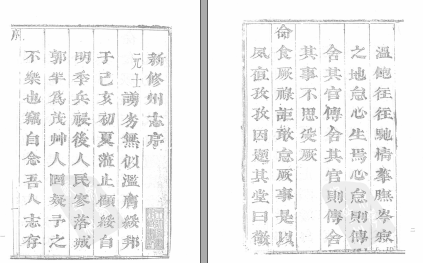 新修州志序
元士謭劣無似濫膺綏邦
于己亥初夏蒞止傾綏自
明季兵祲後人民寥落城
郭半為茂艸人固疑予之
不樂也竊自念吾人志存
溫飽徃徃馳寂
之地怠心生焉心怠則傳
舍其官傳舍其官則傳舍
其事不思受厥
命食厥祿詎敢怠厥事是以
夙宵孜孜因題其堂曰儆